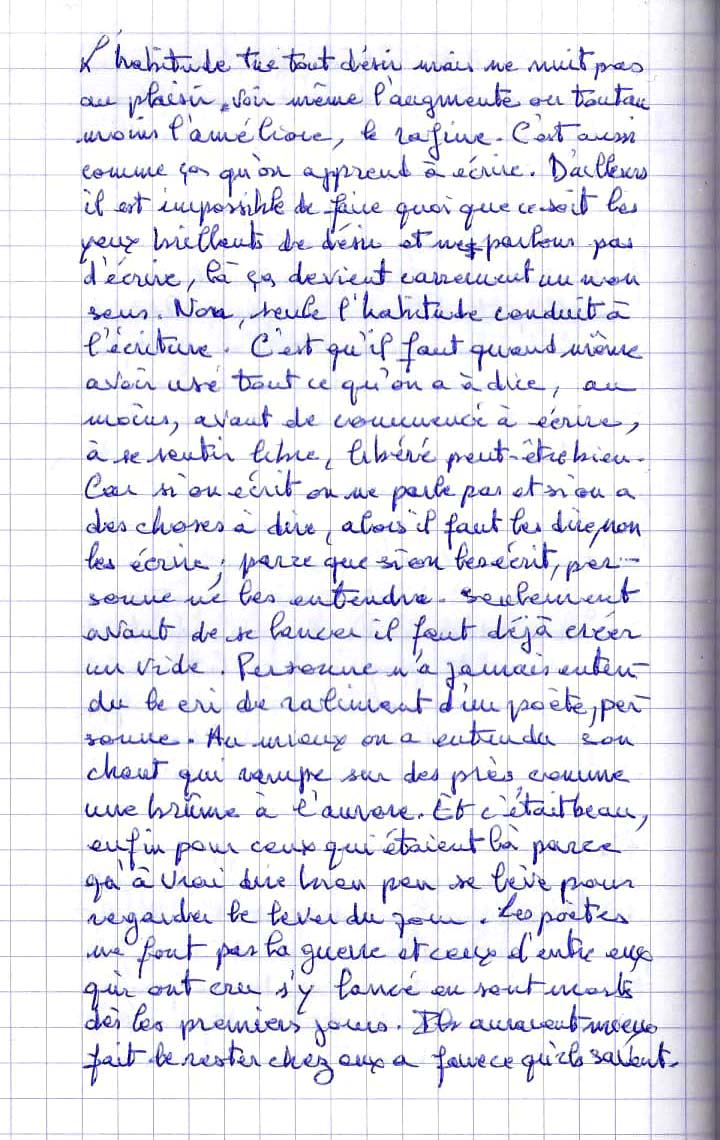 L'habitude tue tout désir mais ne nuit pas
au plaisir, voir même l'augmente ou tout au
moins l'améliore, le rafine. C'est aussi
comme ça qu'on apprend à écrire. D'ailleurs
il est impossible de faire quoi que ce soit les
yeux brillants de désir et ne parlons pas
d'écrire, là ça devient carrement un non
sens. Non, seule l'habitude conduit à
l'écriture. C'est qu'il faut quand même
avoir usé tout ce qu'on a à dire, au
moins, avant de commencé à écrire,
à se sentir libre, libéré peut-être bien.
Car si on écrit on ne parle pas et si on a
des choses à dire, alors il faut les dire, non
les écrire; parce que si on les écrit, per-
sonne ne les entendra. Seulement
avant de se lancer il faut déjà créer
un vide. Personne n'a jamais enten-
du le cri de raliment d'un poète, per-
sonne. Au mieux on a entendu son
chant qui rampe sur des près, comme
une brûme à l'aurore. Et c'était beau,
enfin pour ceux qui étaient là parce
qu'à vrai dire bien peu se lève pour
regarder le lever du jour. Les poètes
ne font pas la guerre et ceux d'entre eux
qui ont cru s'y lancé en sont morts
dès les premiers jours. Ils auraient mieux
fait de rester chez eux a faire ce qu'ils savent.